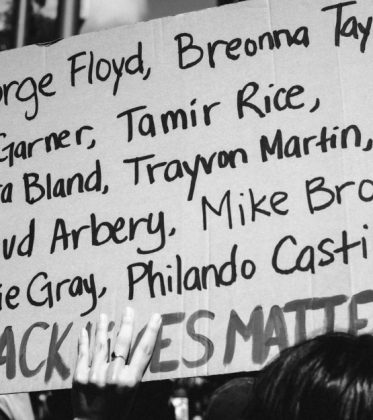 rge Floyd, Breonna Tay
Garner, Tamir Rice,
a Bland, Trayvon Martin,
ud Arbery, Mike Bro
ie Gray, Philando Casti
ACK LIVES MATTE